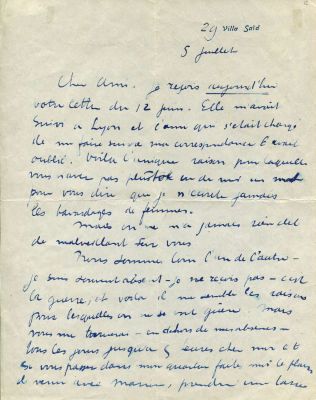 29 Villa Saïd
5 juillet
Cher Ami. je reçois aujourd'hui
votre lettre du 12 juin. Elle m'avait
suivi à Lyon et l'ami que s'était chargé
de me faire suivre ma correspondance l'avait
oublié. Voilà l'unique raison pour laquelle
vous n'avez pas plutôt eu de moi un mot
pour vous dire que je n'écoute jamais
les bavardages de femmes.
Mais on ne m'a jamais rien dit
de malveillant sur vous
Nous sommes loin l'un de l'autre
je suis souvent absent - je ne reçois pas - c'est
la guerre, et voilà il me semble les raisons
pour lesquelles on ne se voit guère. Mais
vous me trouverez - en dehors de mes absences -
tous les jours jusqu'à 5 heures chez moi et
si vous passez dans mon quartier faites moi le plaisir
de venir avec, prendre une tasse